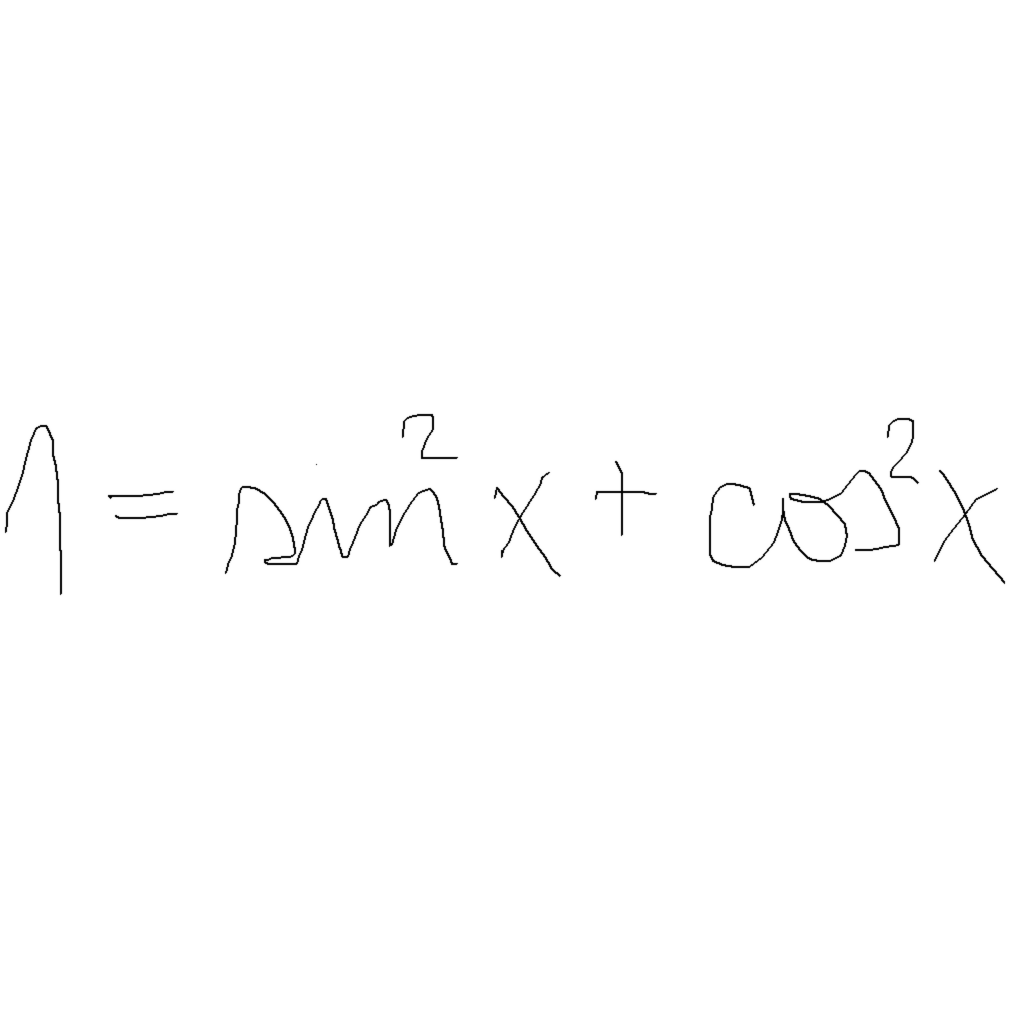 1 = sin²x + cos²x